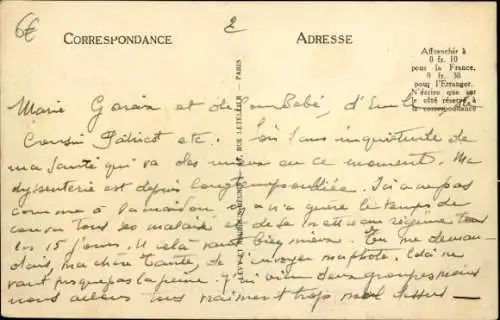 6€
2
CORRESPONDANCE
ADRESSE
Affranchir à
0 fr. 10
pour la France,
0 fr. 30
pour l'Étranger.
N'écrire que sur
le côté réservé à
la correspondance
PARIS
RUE LETELLIER
LEVY ET NEURDEIN RÉUNIS
Marie et de son Bébé, d'
Cousin Patriot etc. Sois sans inquiétude de
ma santé qui va des mieux en ce moment. Ma
dyssenterie est depuis longtemps oubliée. Ici pas
comme à la maison, on n'a guère le temps de
tous les malaises et de se mettre au régime tous
les 15 jours. Et cela vaut bien mieux. Tu me deman-
dais ma chère Tante de t'envoyer ma photo. Cela ne
vaut presque pas la peine. J'ai bien deux groupes mais
nous sommes tous vraiment trop mal dessus